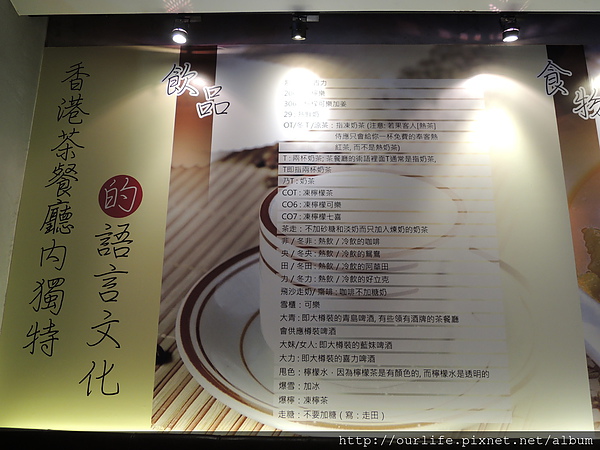 香港茶餐廳內獨特
的語言文化
飲品
食物
30
29
OT/冬T/凉茶：指凍奶茶 (注意: 若果客人[熱茶]
侍應只會給你一杯免費的奉客熱
紅茶, 而不是熱奶茶)
T : 兩杯奶茶; 茶餐廳的術語裡面T通常是指奶茶,
T即指兩杯奶茶
乃T : 奶茶
COT : 凍檸檬茶
CO6 : 凍檸檬可樂
CO7 : 凍檸檬七喜
茶走 : 不加砂糖和淡奶而只加入煉奶的奶茶
非 / 冬非 : 熱飲 / 冷飲的咖啡
央 / 冬央 : 熱飲 / 冷飲的鴛鴦
田 / 冬田 : 熱飲 / 冷飲的阿華田
力 / 冬力 : 熱飲 / 冷飲的好立克
飛沙走奶/ 齋啡 : 咖啡不加糖奶
雪櫃 : 可樂
大青 : 即大樽裝的青島啤酒, 有些領有酒牌的茶餐廳
會供應樽裝啤酒
大妹/女人: 即大樽裝的藍妹啤酒
大力 : 即大樽裝的喜力啤酒
甩色 : 檸檬水，因為檸檬茶是有顏色的, 而檸檬水是透明的
爆雪 : 加冰
爆檸 : 凍檸茶
走糖 : 不要加糖（寫 : 走田）
http://ourlife.pixnet.net/album